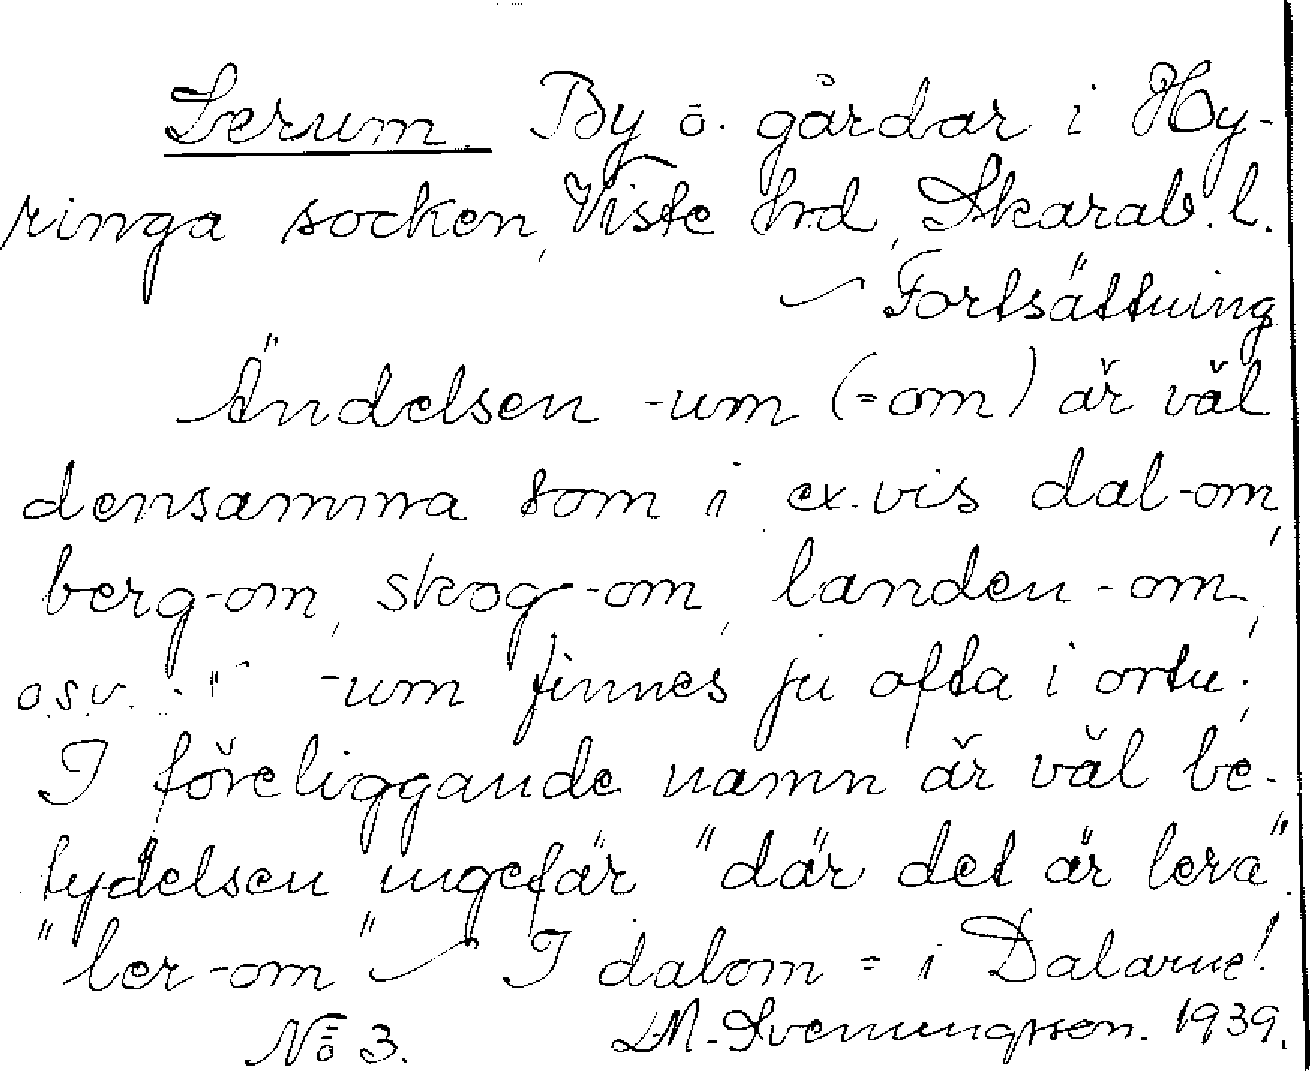 Lerum. By o. gårdar i Hy-
ringa socken, Viste hrd, Skarab. l.
— Fortsättning
Ändelsen -um (=om) är väl
densamma som i ex.vis dal-om,
berg-om, skog-om, landen-om,
o.s.v. -um finnes ju ofta i ortn.
I föreliggande namn är väl be-
tydelsen ungefär "där det är lera".
"ler-om" — I dalom = i Dalarne!
No 3. LM. Svenungsson. 1939.